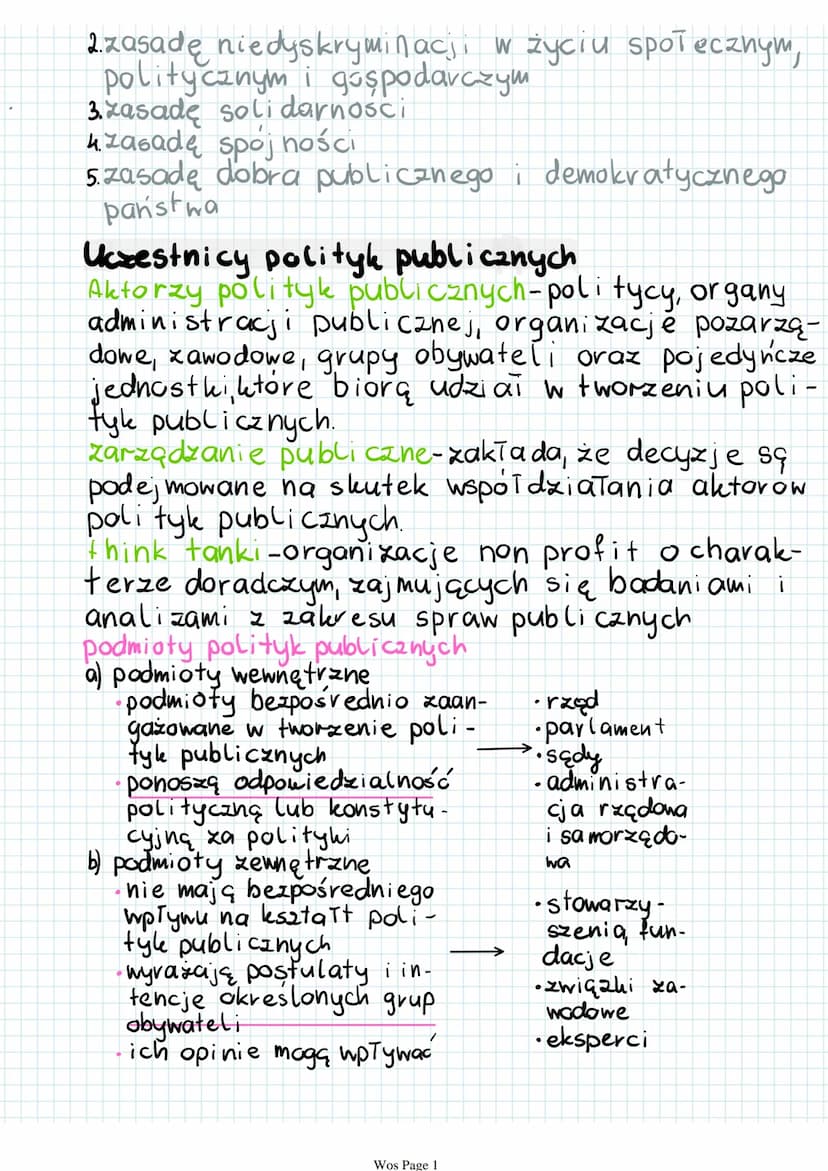 2.zasadę niedyskryminacji w życiu społecznym,
politycznym i gospodarczym
3.zasadę solidarności
4.zasadę spójności
5.zasadę dobra publicznego i demokratycznego
państwa
Uczestnicy polityk publicznych
Aktorzy polityk publicznych-politycy, organy
administracji publicznej, organizacje pozarzą-
dowe, zawodowe, grupy obywateli oraz pojedyńcze
jednostki,które biorą udział w tworzeniu poli-
tyk publicznych.
zarządzanie publiczne-zakłada, że decyzje są
podejmowane na skutek współdziałania aktorów
polityk publicznych.
think tanki-organizacje non profit o charak-
terze doradczym, zajmujących się badaniami i
analizami z zakresu spraw publicznych
podmioty polityk publicznych
a) podmioty wewnętrzne
·podmioty bezpośrednio zaan-
gażowane w tworzenie poli-
tyk publicznych
·ponoszą odpowiedzialność
polityczną lub konstytu-
cyjną za polityki
→
·rząd
·parlament
·sądy
·administra-
cja rządowa
i samorządo-
wa
b) podmioty zewnętrzne
·nie mają bezpośredniego
wpływu na kształt poli-
tyk publicznych
·wyrażają postulaty i in-
tencje określonych grup
obywateli
·ich opinie mogą wpływać
→
·stowarzy-
szenia, fun-
dacje
·związki za-
wodowe
·eksperci
Wos Page 1